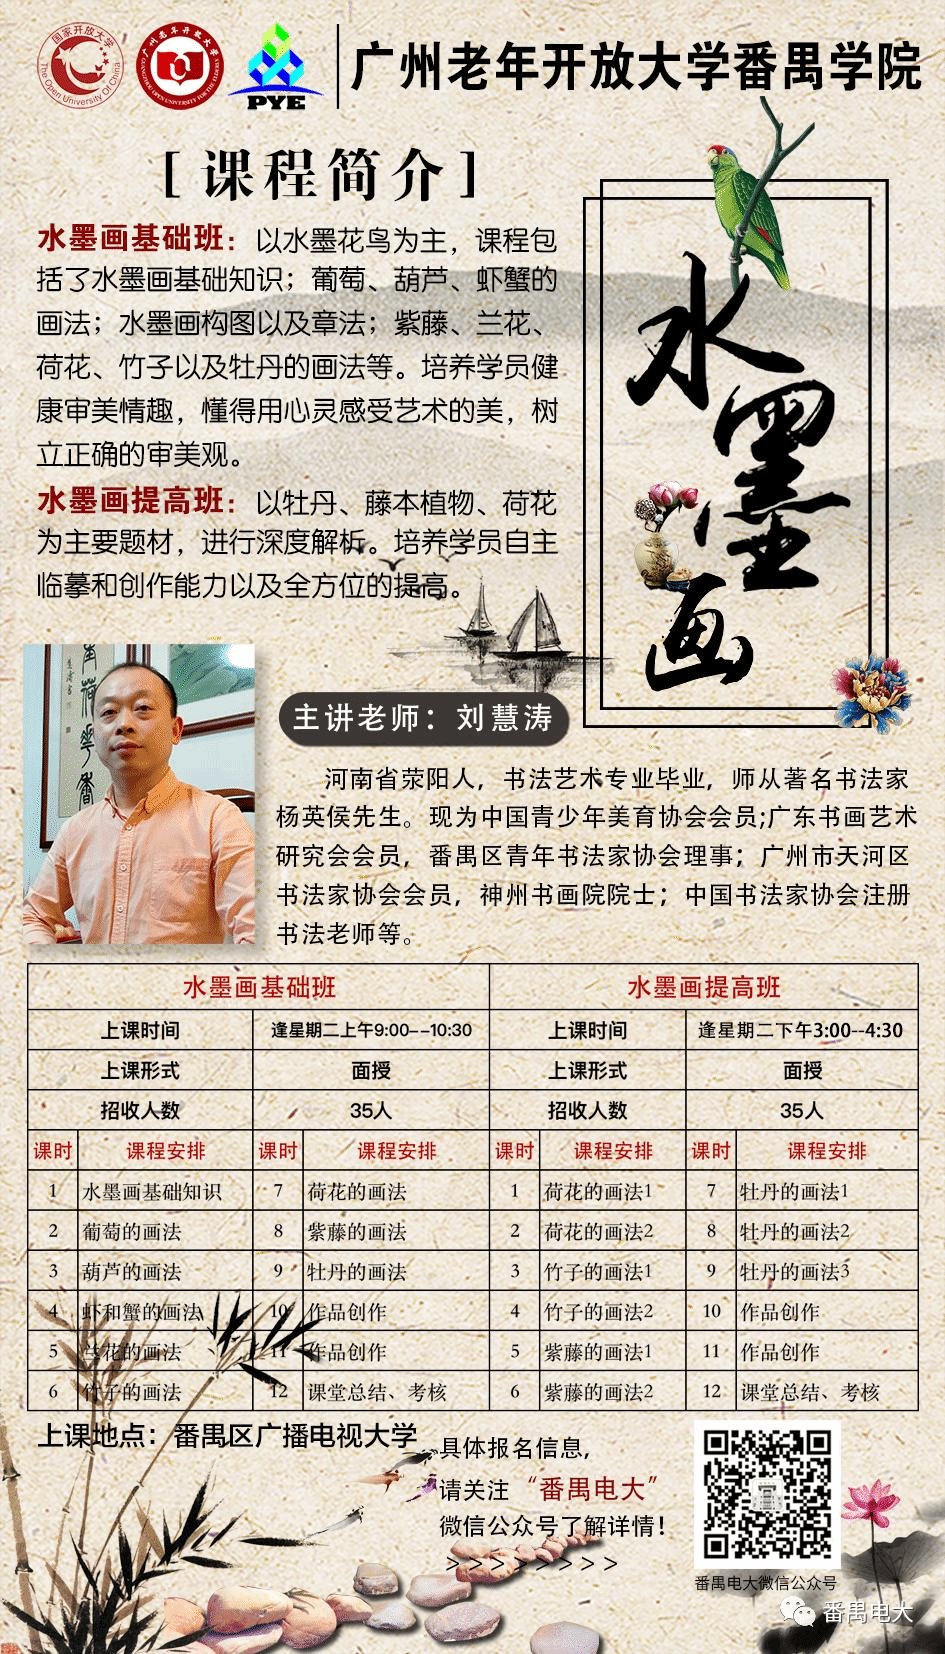 国家开放大学
The Open University Of China
广州老年开放大学
GUANGZHOU OPEN UNIVERSITY FOR THE ELDERLY
PYE
广州老年开放大学番禺学院
[课程简介]
水墨画基础班：以水墨花鸟为主，课程包
括了水墨画基础知识；葡萄、葫芦、虾蟹的
画法；水墨画构图以及章法；紫藤、兰花、
荷花、竹子以及牡丹的画法等。培养学员健
康审美情趣，懂得用心灵感受艺术的美，树
立正确的审美观。
水墨画提高班：以牡丹、藤本植物、荷花
为主要题材，进行深度解析。培养学员自主
临摹和创作能力以及全方位的提高。
水墨画
主讲老师：刘慧涛
河南省荥阳人，书法艺术专业毕业，师从著名书法家
杨英侯先生。现为中国青少年美育协会会员;广东书画艺术
研究会会员，番禺区青年书法家协会理事；广州市天河区
书法家协会会员，神州书画院院士；中国书法家协会注册
书法老师等。
水墨画基础班 水墨画提高班
上课时间 逢星期二上午9:00--10:30 上课时间 逢星期二下午3:00--4:30
上课形式 面授 上课形式 面授
招收人数 35人 招收人数 35人
课时 课程安排 课时 课程安排 课时 课程安排 课时 课程安排
1 水墨画基础知识 7 荷花的画法 1 荷花的画法1 7 牡丹的画法1
2 葡萄的画法 8 紫藤的画法 2 荷花的画法2 8 牡丹的画法2
3 葫芦的画法 9 牡丹的画法 3 竹子的画法1 9 牡丹的画法3
4 虾和蟹的画法 10 作品创作 4 竹子的画法2 10 作品创作
5 兰花的画法 11 作品创作 5 紫藤的画法1 11 作品创作
6 竹子的画法 12 课堂总结、考核 6 紫藤的画法2 12 课堂总结、考核
上课地点：番禺区广播电视大学
具体报名信息，
请关注“番禺电大”
微信公众号了解详情！
>>>>>>>>
番禺电大微信公众号
番禺电大